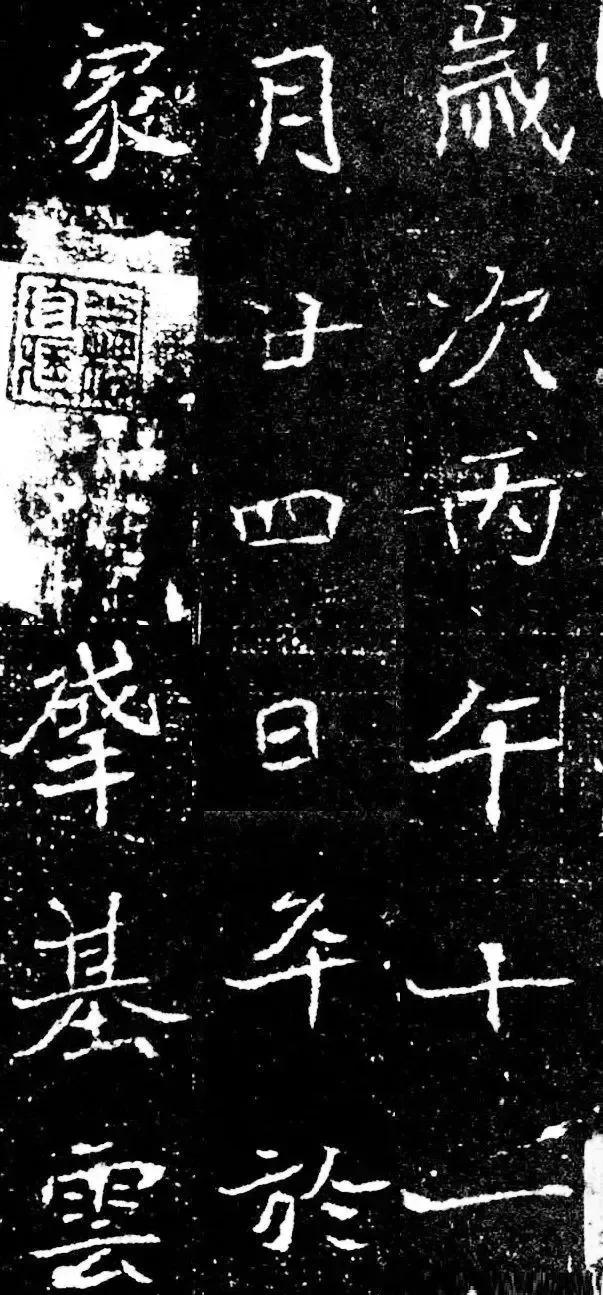 歲次丙午十一
月廿四日卒於
家
肇基雲